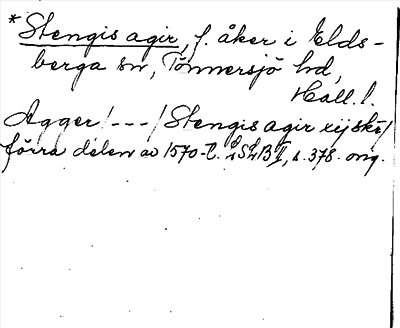 *Stengis agir, f. åker i Elds-
berga sn, Tönnersjö hd,
Hall. l.
Agger /---/ Stengis agir rijskr/
förra delen av 1570-t. LSHB II, s. 378. orig.